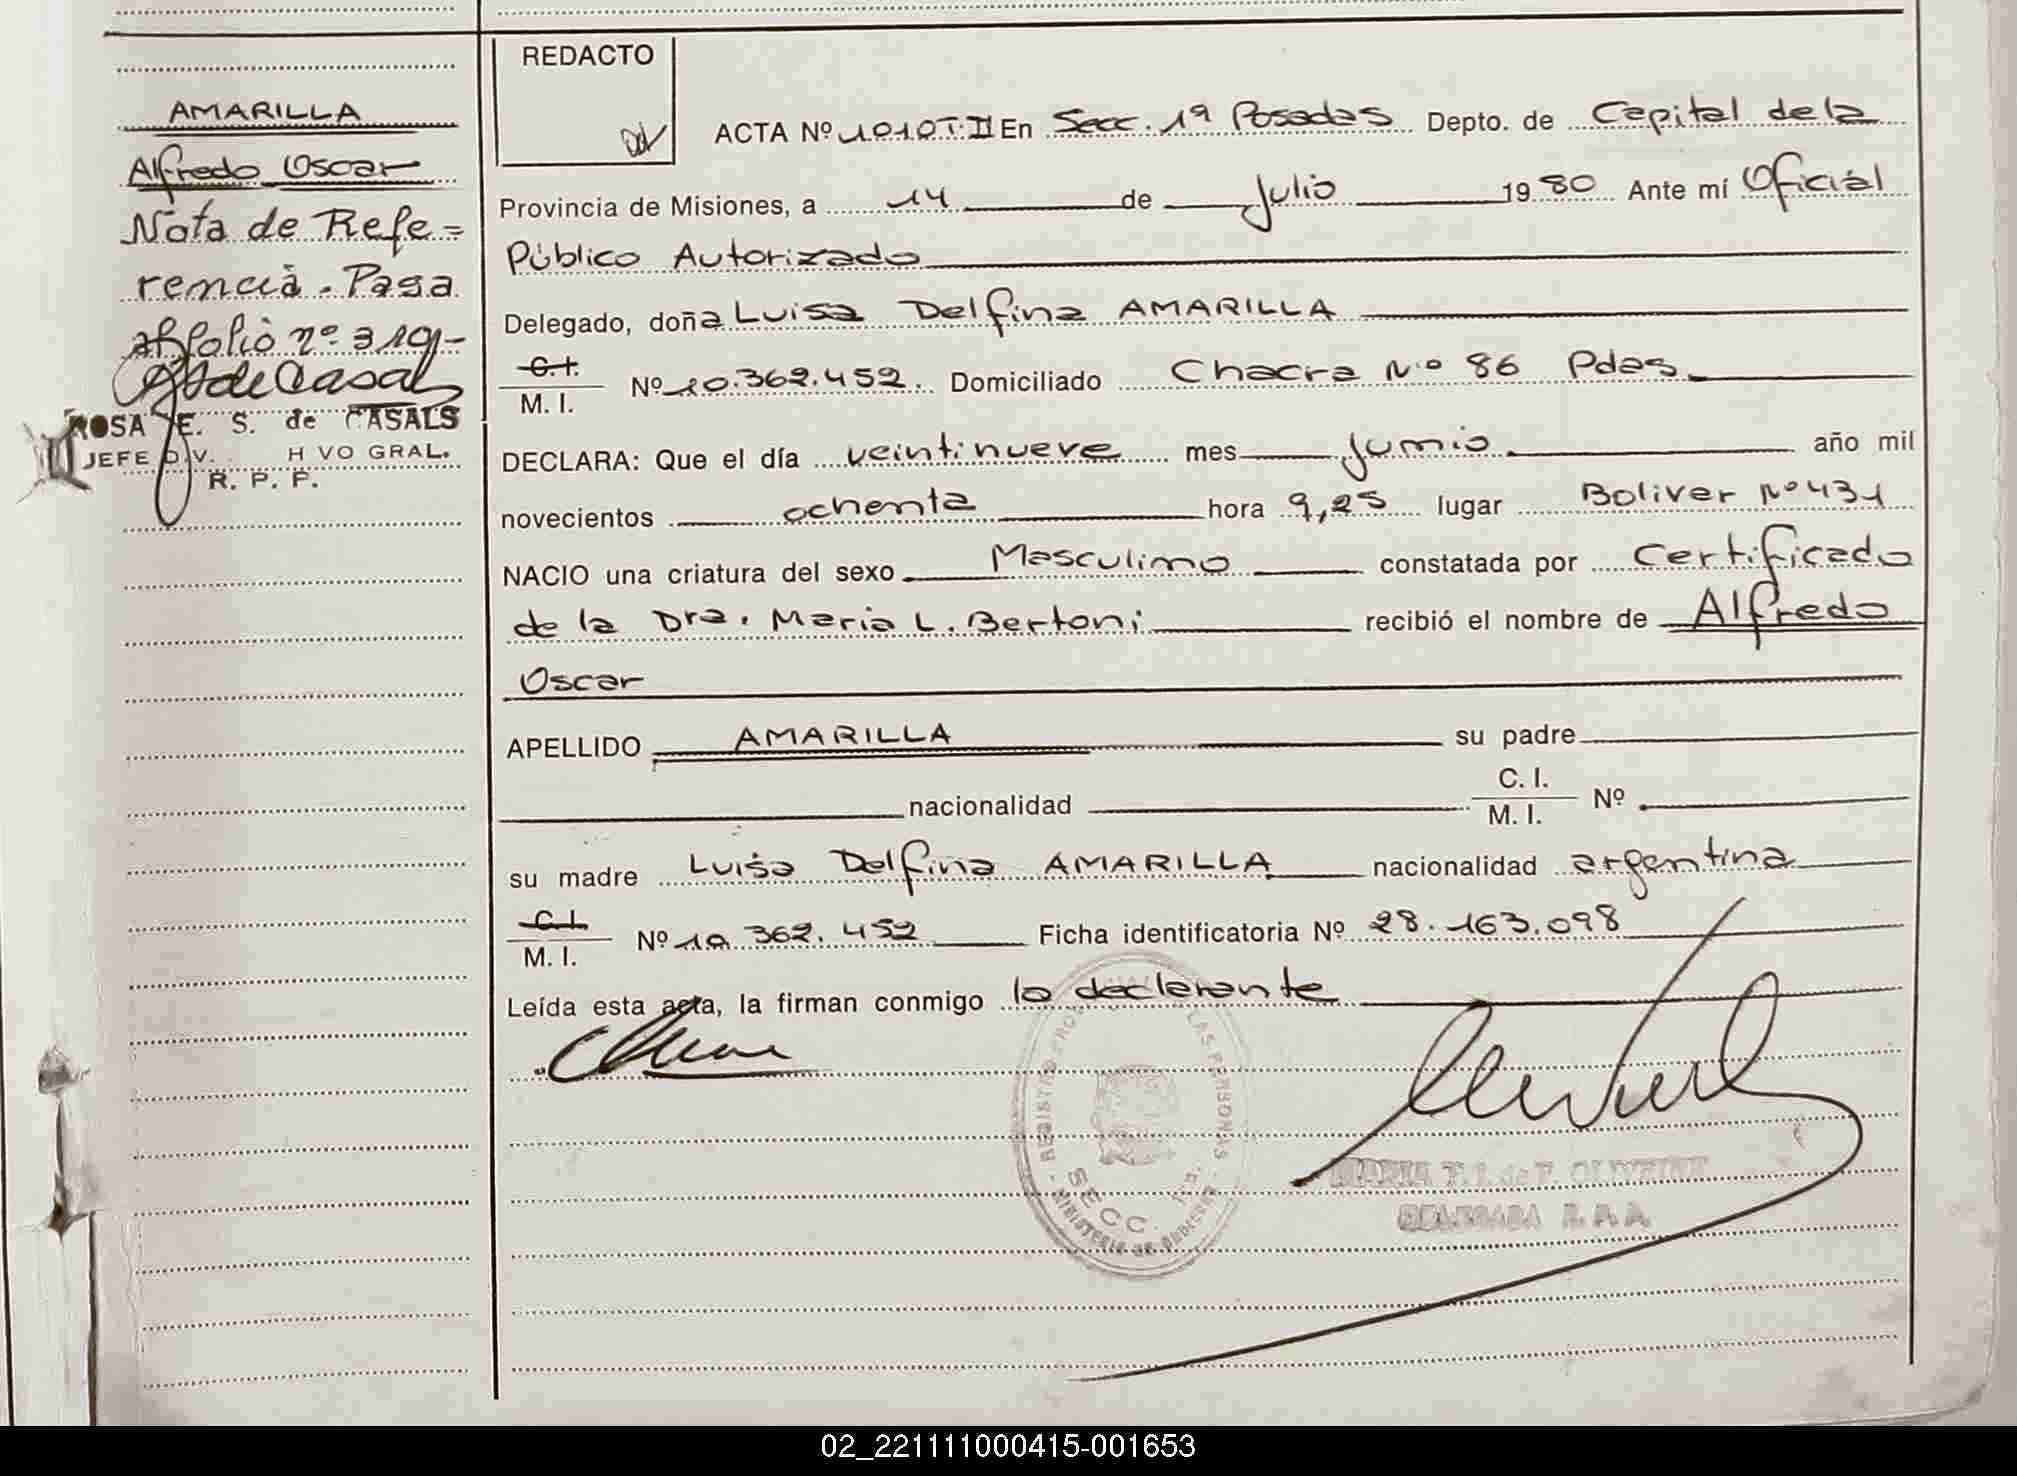 AMARILLA
Alfredo Oscar
Nota de Refe=
rencia. Pasa
al folio nº 319-
ROSA E. S. de CASALS
JEFE DIV. H VO GRAL.
R. P. P.
REDACTO
ACTA Nº 1010 T. II En Secc. 1ª Posadas Depto. de Capital de la
Provincia de Misiones, a 14 de Julio 1980 Ante mí Oficial
Público Autorizado
Delegado, doña Luisa Delfina AMARILLA
C. I.
M. I. Nº 10.362.452. Domiciliado Chacra Nº 86 Pdas.
DECLARA: Que el día veintinueve mes junio año mil
novecientos ochenta hora 9,25 lugar Bolivar Nº 431
NACIO una criatura del sexo Masculino constatada por Certificado
de la Dra. Maria L. Bertoni recibió el nombre de Alfredo
Oscar
APELLIDO AMARILLA su padre
nacionalidad C. I.
M. I. Nº
su madre Luisa Delfina AMARILLA nacionalidad argentina
C. I.
M. I. Nº 10.362.452 Ficha identificatoria Nº 28.163.098
Leída esta acta, la firman conmigo la declarante
REGISTRO PROVINCIAL DE LAS PERSONAS
SECC.
MINISTERIO DE GOBIERNO
MARIA T. I. de F. OLIVEIRA
DELEGADA
02_221111000415-001653